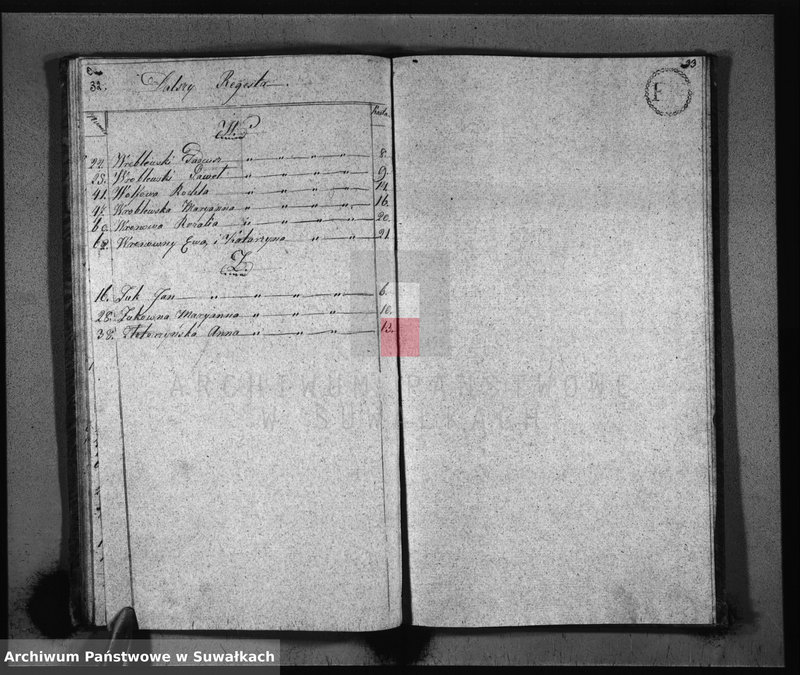 32.
Dalszy Regestr
33
Karta
W
22. Wroblewski 8.
23. Wroblewski Paweł 9.
41. Rochla 14.
47. Wroblewska Maryanna 16.
60. Rozalia 20.
62. Ewa i Katarzyna 21
Z
16. Żuk Jan 6.
28. Żukowna Maryanna 10.
38. Anna 13.
ARCHIWUM PAŃSTWOWE
W SUWAŁKACH
Archiwum Państwowe w Suwałkach